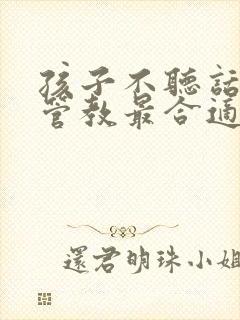 孩子不聽話
管教最合適
還君明珠小姐